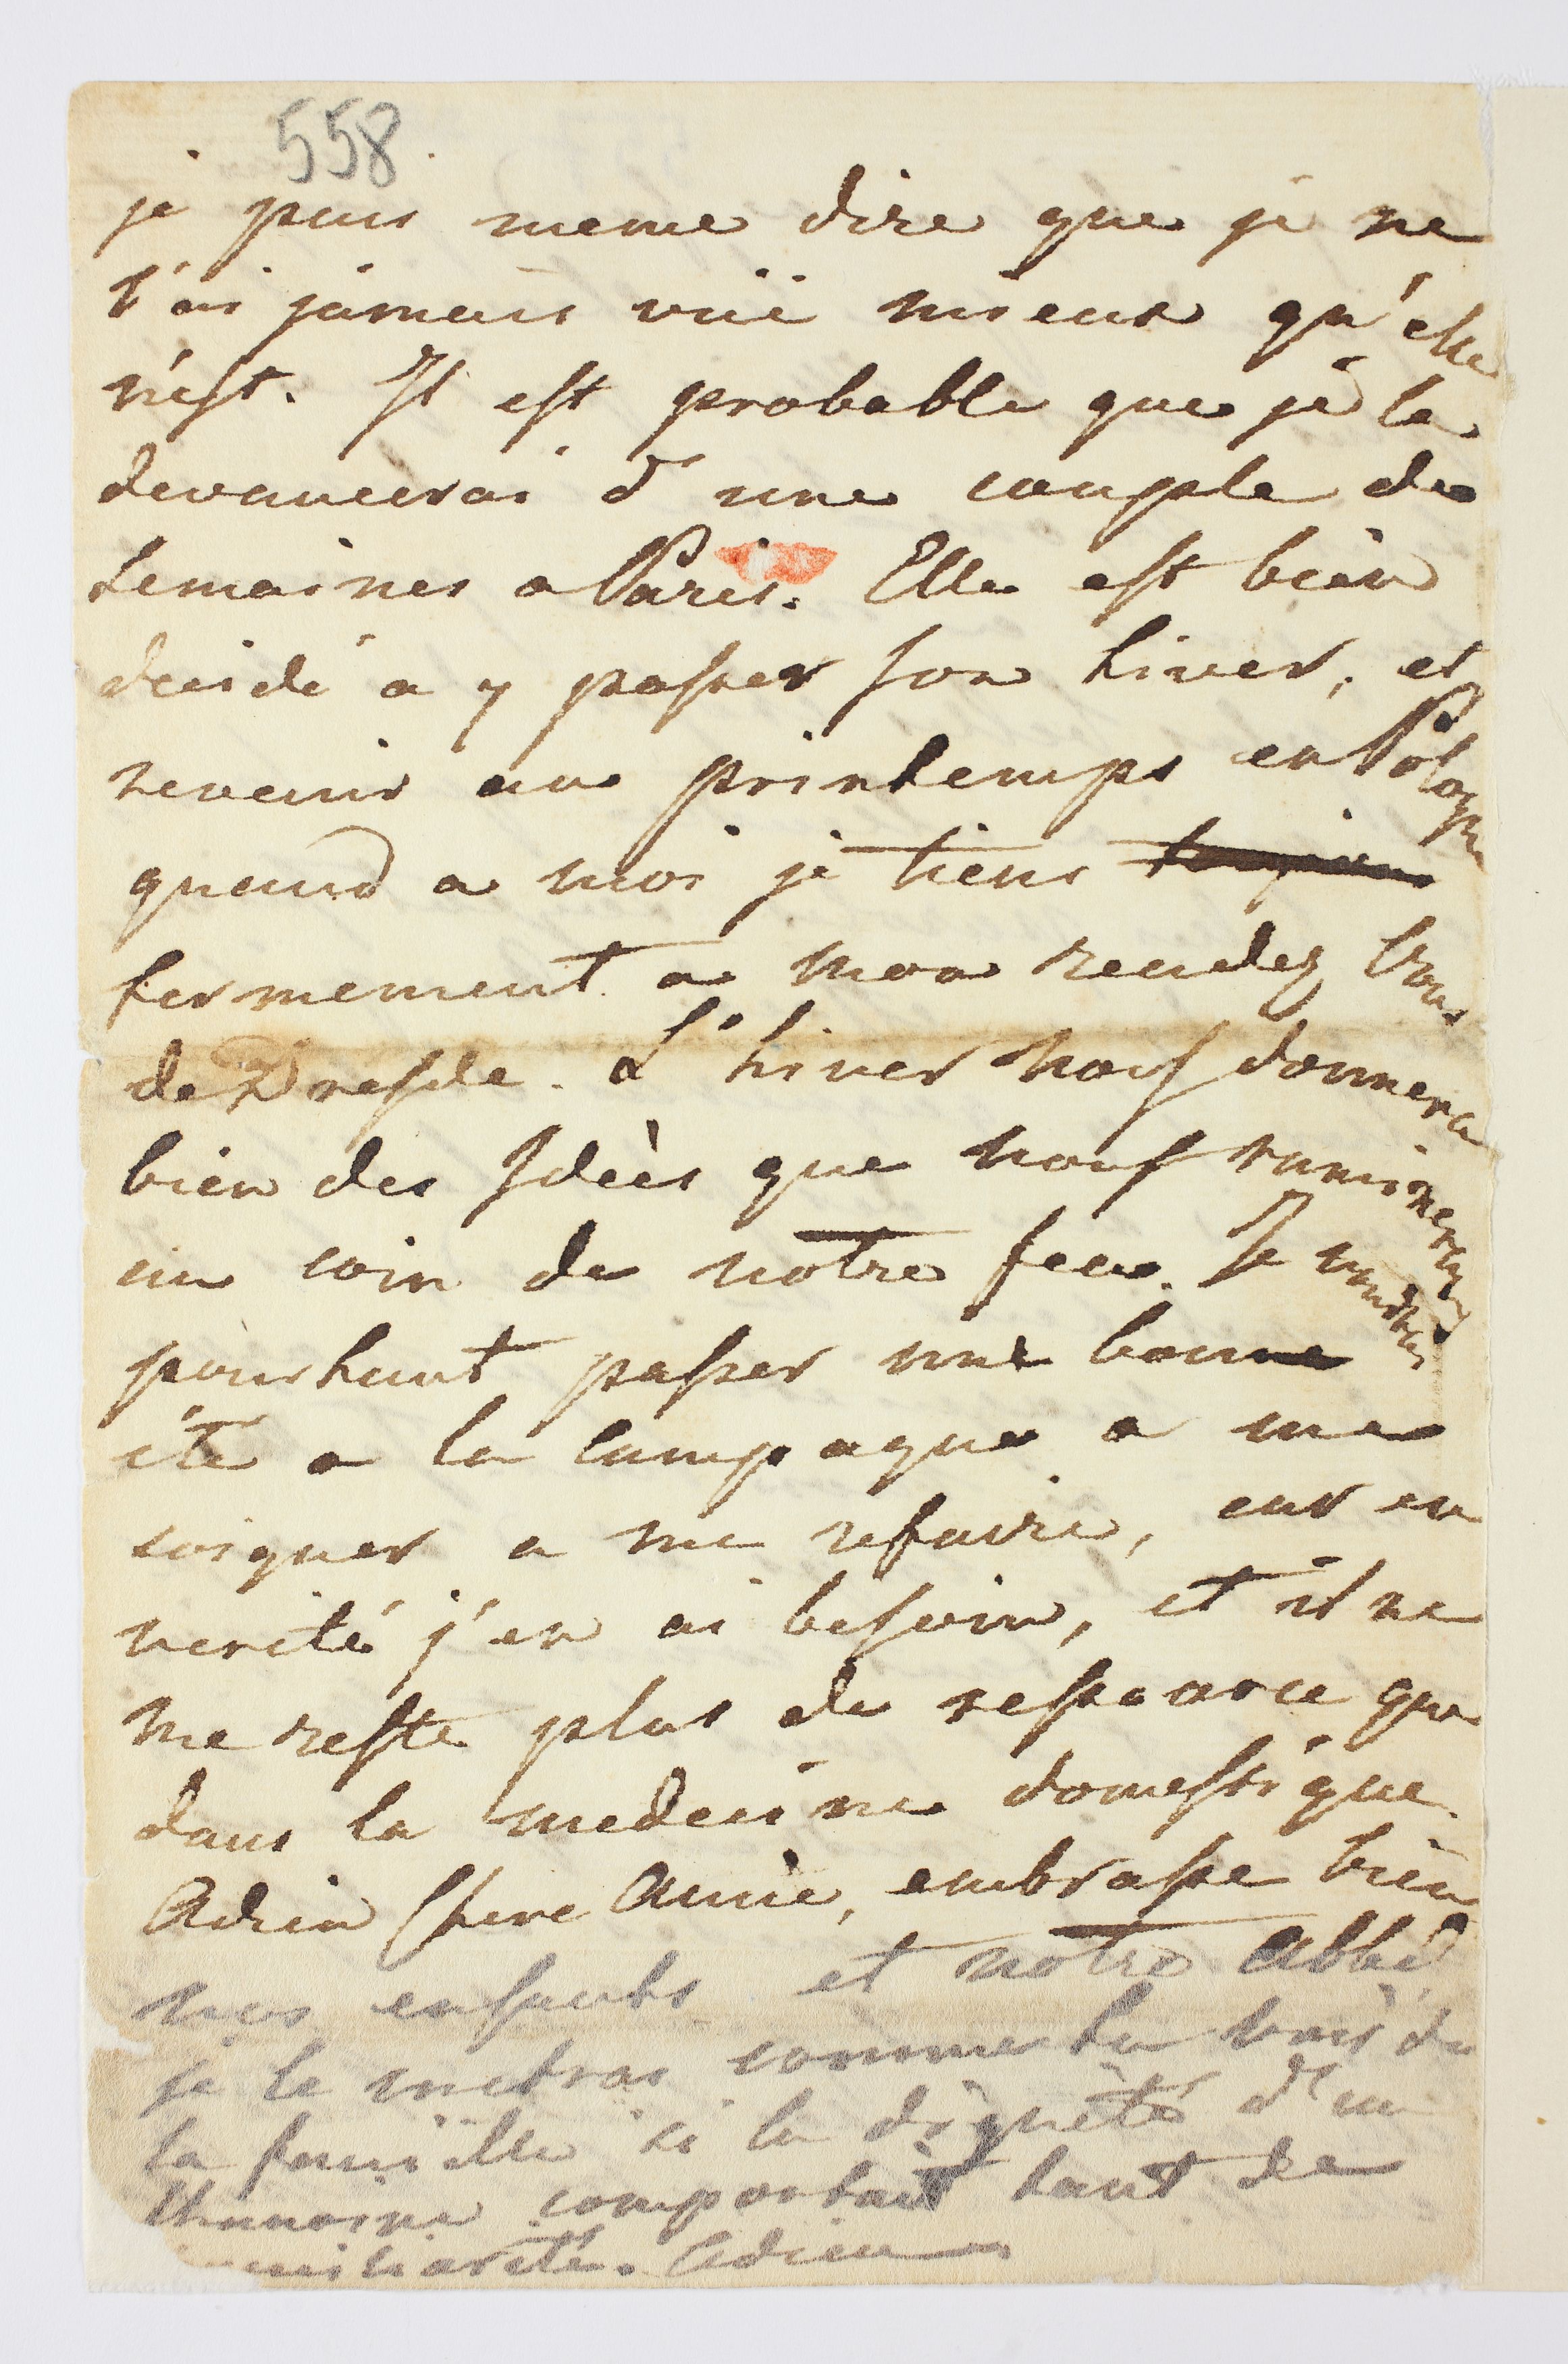 558
je puis meme dire que je ne
l'ai jamais vüe mieux qu'elle
n'est. Il est probable que je la
devancerai d'une couple de
semaines a Paris. Elle est bien
decidé a y passer son hiver, et
revenir au printemps en Pologne
quand a moi je tiens
fermement a mon rendez vous
de Dresde. L'hiver nous donnera
bien des Idèes que nous ruminerons
au coin de notre feu. Je voudrai
pourtant passer une bonne
été a la campagne a me
soigner a me refaire, car en
verité j'en ai besoin, et il ne
me reste plus de ressource que
dans la medecine domestique.
Adieu chere Amie, embrasse bien
nos enfants et notre Abbé
je le metrai comme tu vois de
la famille si la digneté d'un
Chanoine comportait tant de
familiarité. Adieu